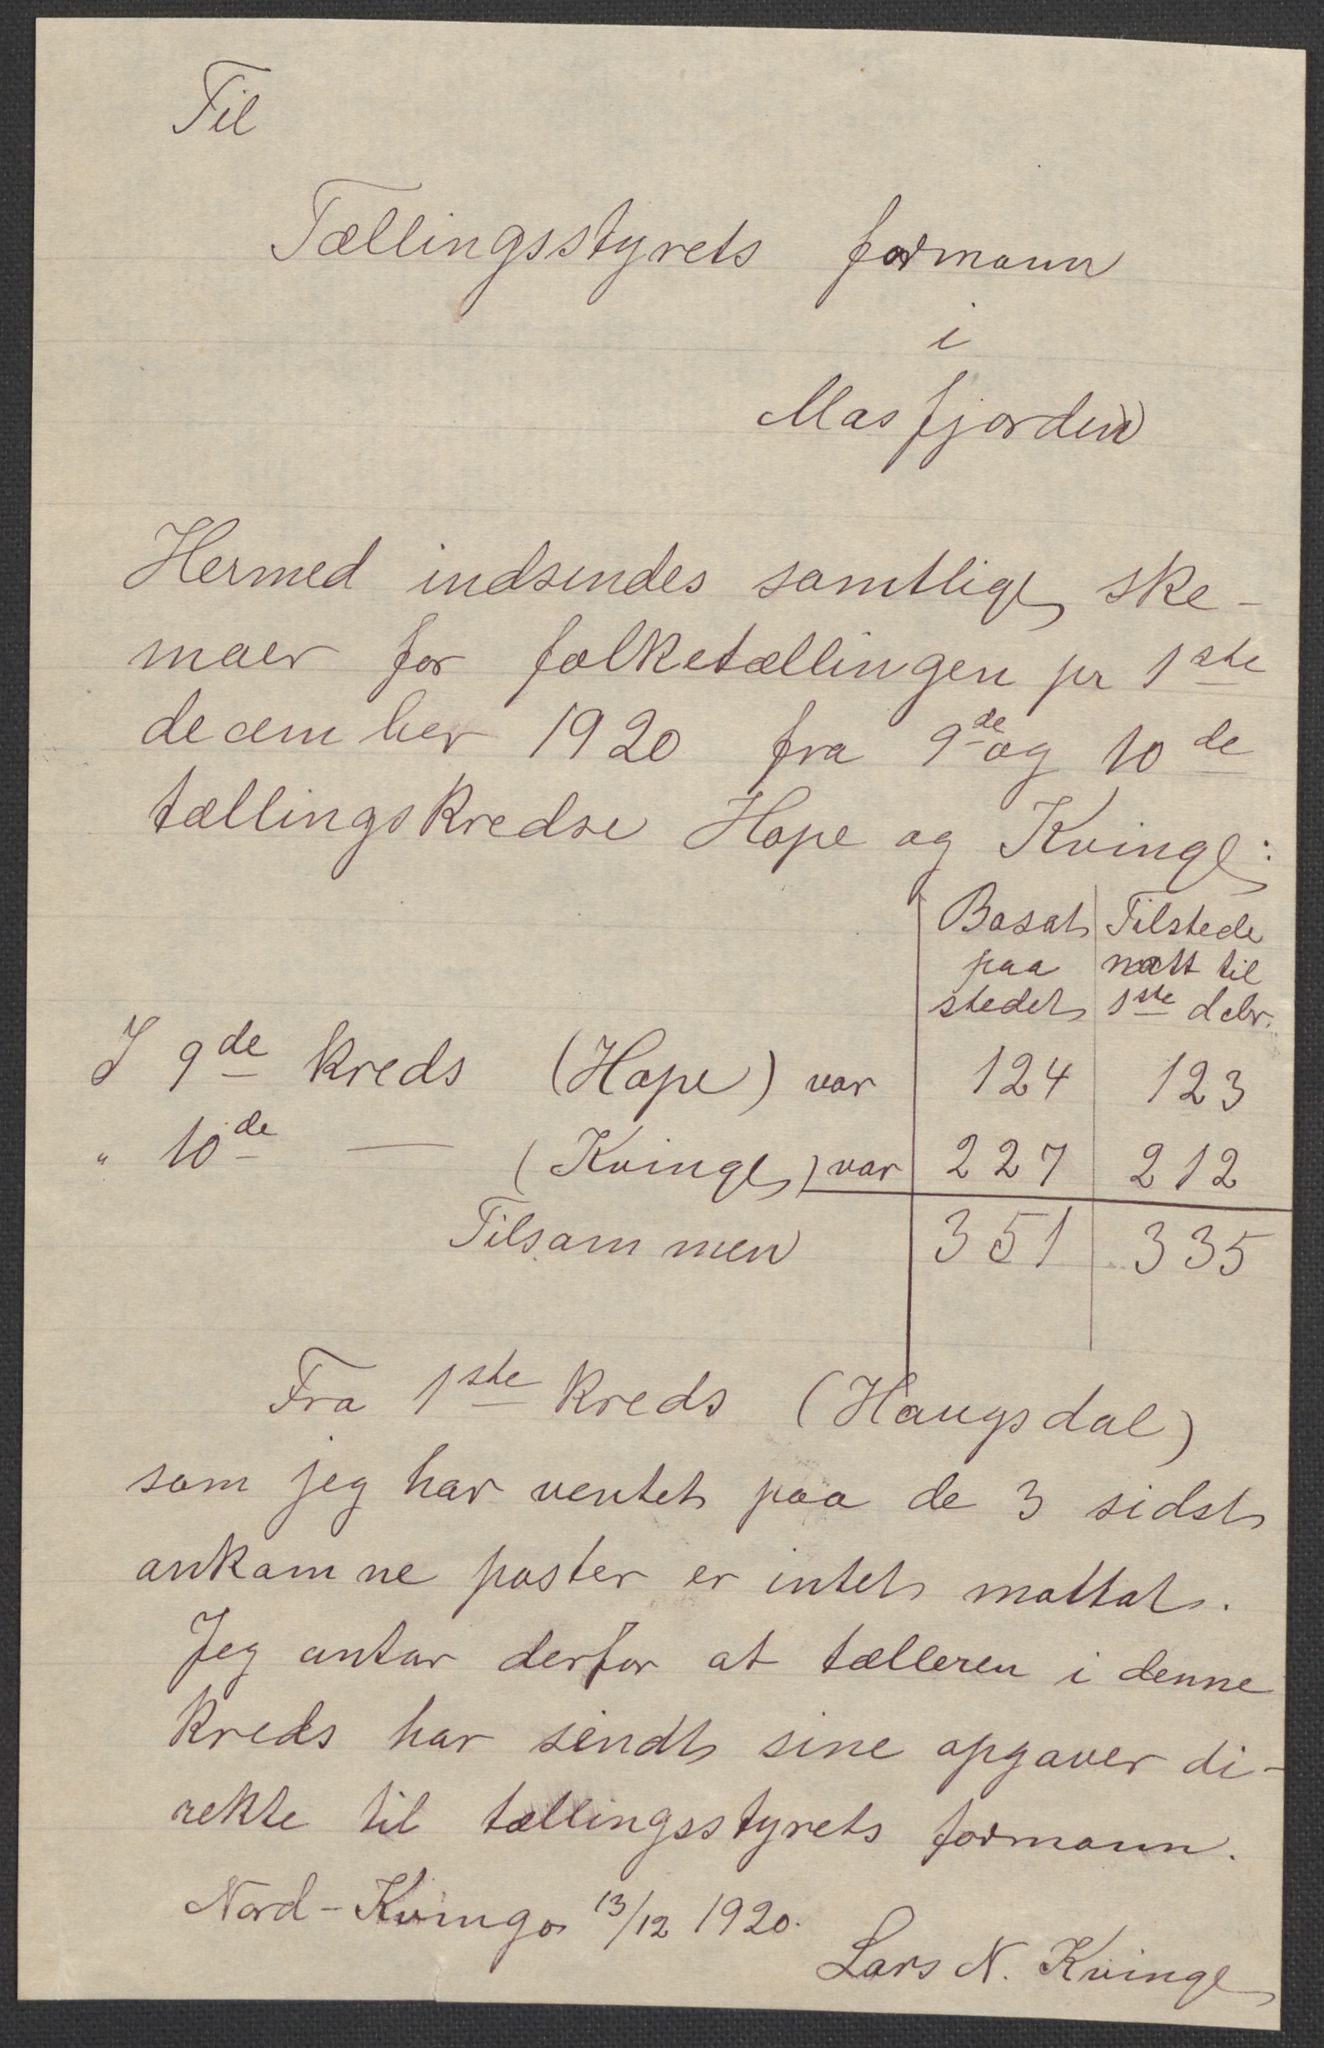 Til
Tællingsstyrets formann
i
Masfjorden
Hermed indsendes samtlige ske-
maer for folketællingen pr 1ste
december 1920 fra 9de og 10de
tællingskredse Hope og Kvinge:
Bosat Tilstede
paa natt til
stedet 1ste debr.
I 9de kreds (Hope) var 124 123
" 10de — (Kvinge) var 227 212
Tilsammen 351 335
Fra 1ste kreds (Haugsdal)
som jeg har ventet paa de 3 sidst
ankomne poster er intet mottat.
Jeg antar derfor at tælleren i denne
kreds har sendt sine opgaver di-
rekte til tællingsstyrets formann.
Nord-Kvinge 13/12 1920.
Lars N. Kvinge